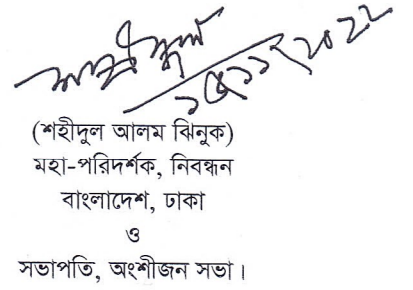 (শহীদুল আলম ঝিনুক)
মহা-পরিদর্শক, নিবন্ধন
বাংলাদেশ, ঢাকা
ও
সভাপতি, অংশীজন সভা।